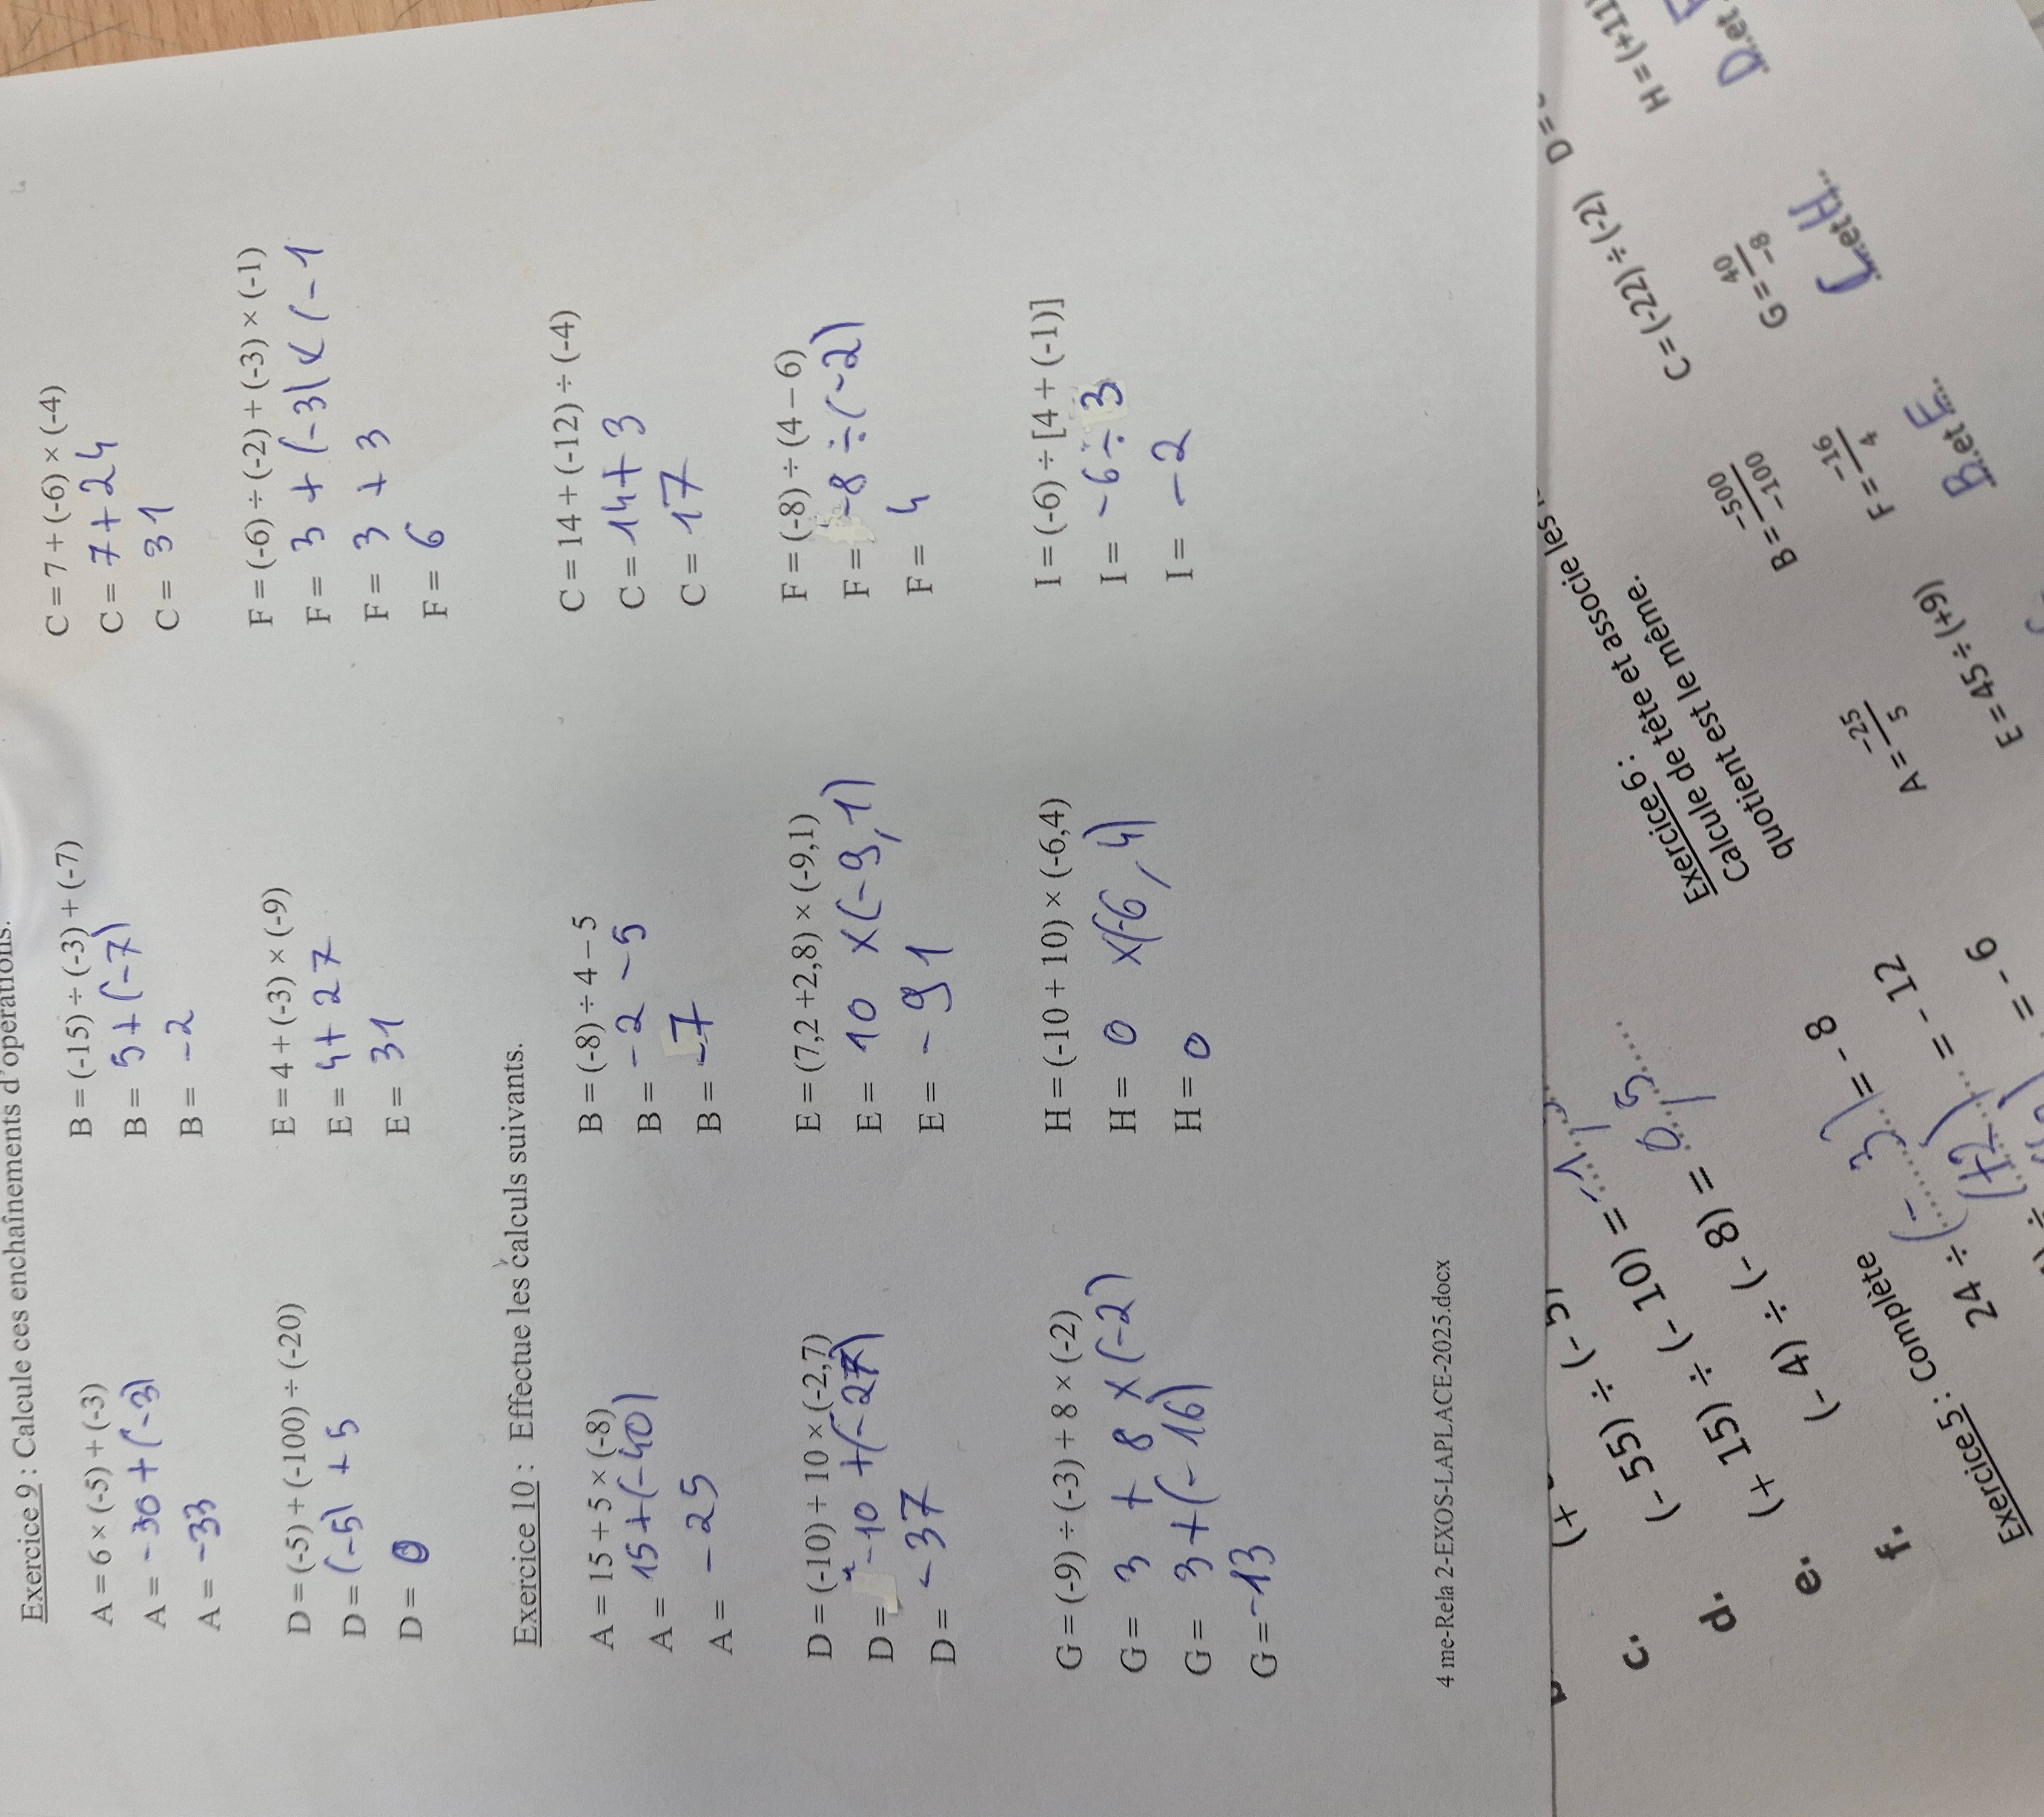 Exercice 9 : Calcule ces enchaînements d'opérations.
A = 6 × (-5) + (-3)
A = -30 + (-3)
A = -33
B = (-15) ÷ (-3) + (-7)
B = 5 + (-7)
B = -2
C = 7 + (-6) × (-4)
C = 7 + 24
C = 31
D = (-5) + (-100) ÷ (-20)
D = (-5) + 5
D = 0
E = 4 + (-3) × (-9)
E = 4 + 27
E = 31
F = (-6) ÷ (-2) + (-3) × (-1)
F = 3 + (-3) × (-1
F = 3 + 3
F = 6
Exercice 10 : Effectue les calculs suivants.
A = 15 + 5 × (-8)
A = 15 + (-40)
A = -25
B = (-8) ÷ 4 – 5
B = -2 -5
B = -7
C = 14 + (-12) ÷ (-4)
C = 14 + 3
C = 17
D = (-10) + 10 × (-2,7)
D = -10 + (-27)
D = -37
E = (7,2 +2,8) × (-9,1)
E = 10 × (-9,1)
E = -91
F = (-8) ÷ (4 – 6)
F = -8 ÷ (-2)
F = 4
G = (-9) ÷ (-3) + 8 × (-2)
G = 3 + 8 × (-2)
G = 3 + (-16)
G = -13
H = (-10 + 10) × (-6,4)
H = 0 ×(-6,4)
H = 0
I = (-6) ÷ [4 + (-1)]
I = -6 ÷ 3
I = -2
4 me-Rela 2-EXOS-LAPLACE-2025.docx
c. (- 55) ÷ (- 10) =
d. (+ 15) ÷ (- 10) =
e. (- 4) ÷ (- 8) = 0,5
f.
Exercice 5 : Complète
24 ÷ (- 3) = - 8
(+2) = - 12
= - 6
Exercice 6 :
Calcule de tête et associe les
quotient est le même.
A = -25/5
B = -500/-100
C = (-22) ÷ (-2)
D =
E = 45 ÷ (+9)
F = -16/4
G = 40/-8
H = (+11
B et E
C et H
D et F